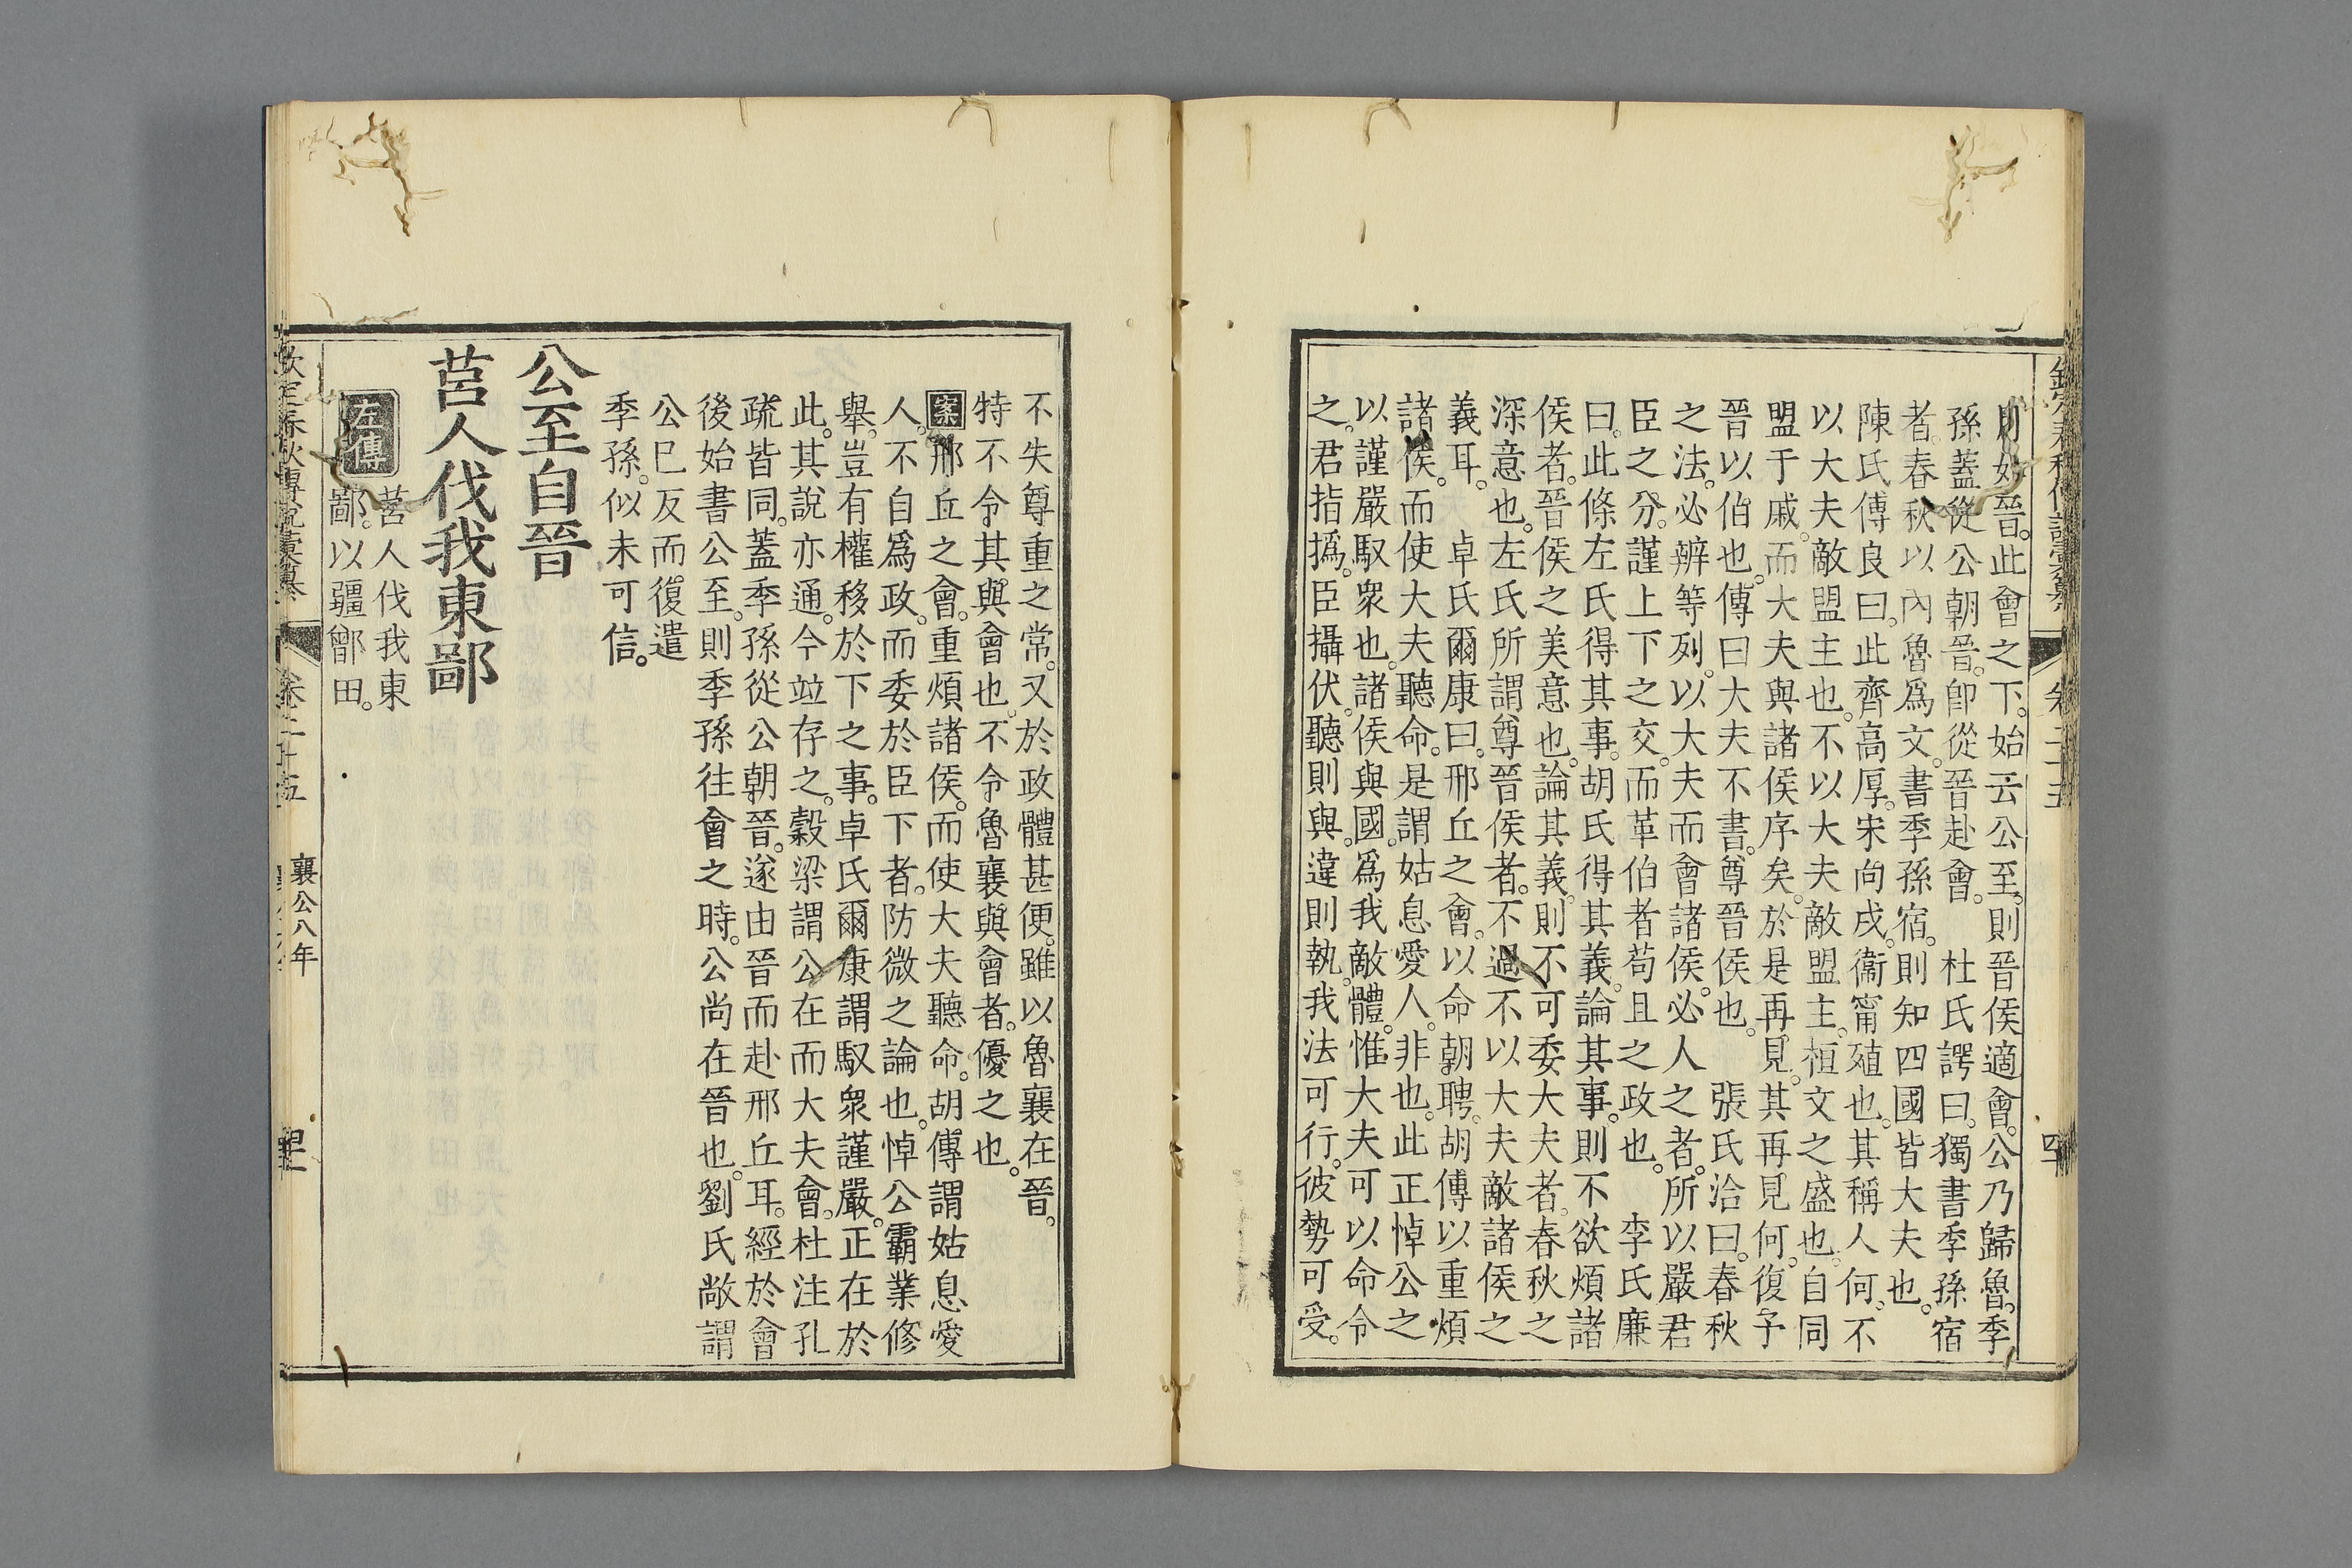 則如晉。此會之下。始云公至。則晉侯適會。公乃歸魯。季
孫蓋從公朝晉。卽從晉赴會。　杜氏諤曰。獨書季孫宿
者。春秋以內魯爲文。書季孫宿。則知四國皆大夫也。
陳氏傅良曰。此齊高厚。宋向戌。衞甯殖也。其稱人何。不
以大夫敵盟主也。不以大夫敵盟主。桓文之盛也。自同
盟于戚。而大夫與諸侯序矣。於是再見。其再見何。復予
晉以伯也。傳曰大夫不書。尊晉侯也。　張氏洽曰。春秋
之法。必辨等列。以大夫而會諸侯。必人之者。所以嚴君
臣之分。謹上下之交。而革伯者苟且之政也。　李氏廉
曰。此條左氏得其事。胡氏得其義。論其事。則不欲煩諸
侯者。晉侯之美意也。論其義。則不可委大夫者。春秋之
深意也。左氏所謂尊晉侯者。不過不以大夫敵諸侯之
義耳。　卓氏爾康曰。邢丘之會。以命朝聘。胡傳以重煩
諸侯。而使大夫聽命。是謂姑息愛人。非也。此正悼公之
以謹嚴馭衆也。諸侯與國。爲我敵體。惟大夫可以命令
之。君指撝。臣攝伏。聽則與。違則執。我法可行。彼勢可受。
欽定春秋傳說彙纂　卷二十五
不失尊重之常。又於政體甚便。雖以魯襄在晉。
特不令其與會也。不令魯襄與會者。優之也。
案邢丘之會。重煩諸侯。而使大夫聽命。胡傳謂姑息愛
人。不自爲政。而委於臣下者。防微之論也。悼公霸業修
舉。豈有權移於下之事。卓氏爾康謂馭衆謹嚴。正在於
此。其說亦通。今竝存之。穀梁謂公在而大夫會。杜注孔
疏皆同。蓋季孫從公朝晉。遂由晉而赴邢丘耳。經於會
後始書公至。則季孫往會之時。公尚在晉也。劉氏敞謂
公已反而。復遣
季孫。似未可信。
公至自晉
莒人伐我東鄙
左傳
莒人伐我東
鄙。以疆鄫田。
欽定春秋傳說彙纂　卷二十五　襄公八年